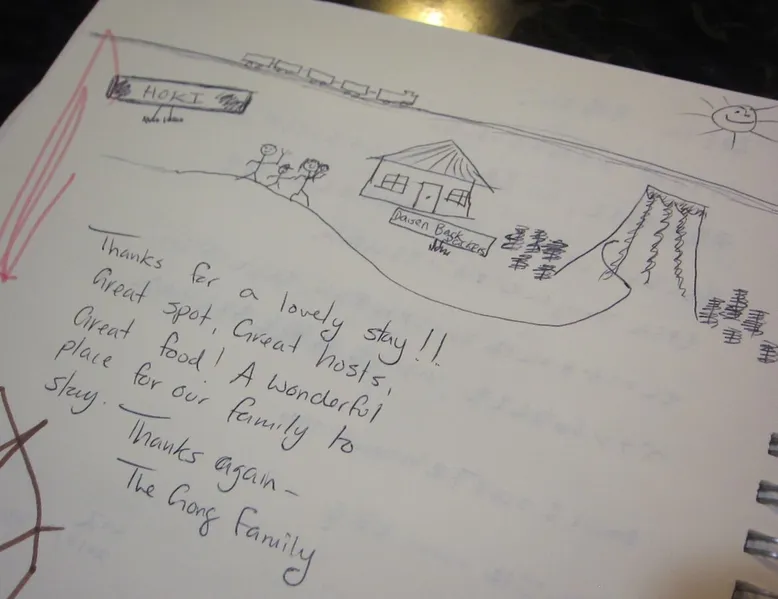 HOKI
Daisen Backpackers
Thanks for a lovely stay!!
Great spot, Great hosts,
Great food! A wonderful
place for our family to
stay.
Thanks again -
The Gong Family